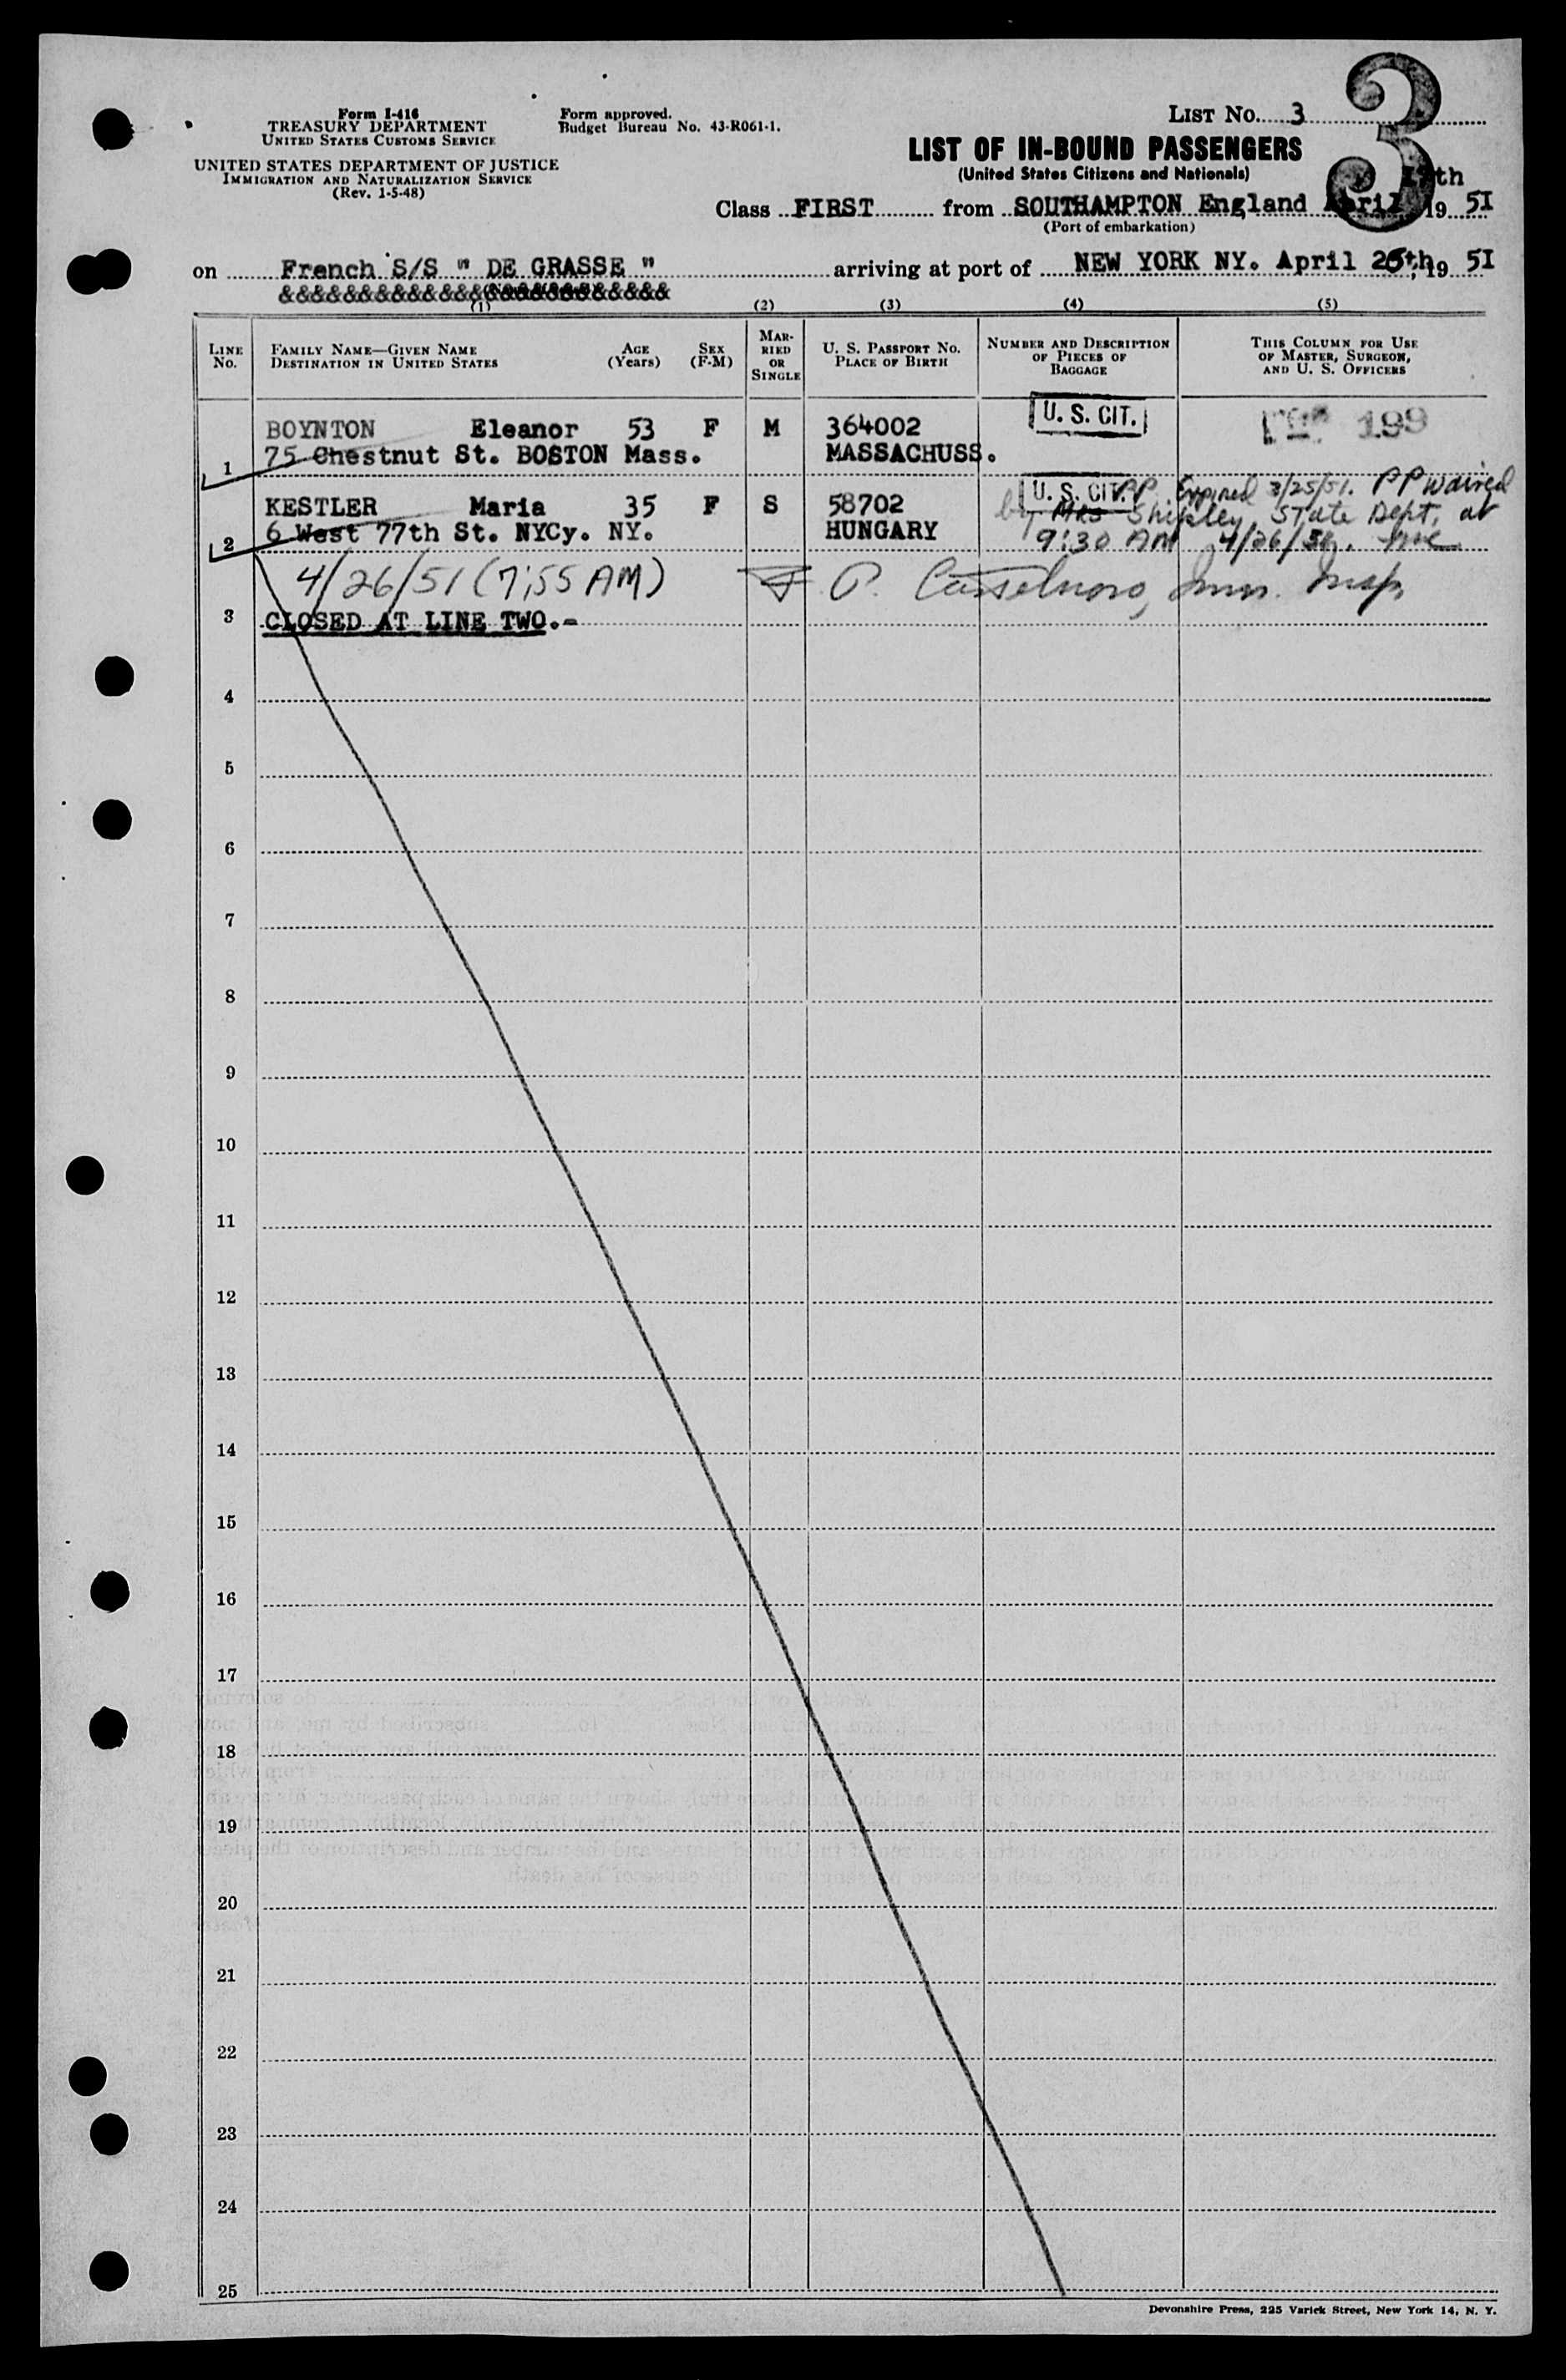 Form I-416
TREASURY DEPARTMENT
UNITED STATES CUSTOMS SERVICE
UNITED STATES DEPARTMENT OF JUSTICE
IMMIGRATION AND NATURALIZATION SERVICE
(Rev. 1-5-48)
Form approved.
Budget Bureau No. 43-R061-1.
LIST No. 3
3
LIST OF IN-BOUND PASSENGERS
(United States Citizens and Nationals)
th
Class FIRST from SOUTHAMPTON England April 19 51
(Port of embarkation)
on French S/S " DE GRASSE " arriving at port of NEW YORK NY. April 26th, 19 51
&&&&&&&&&&&&&&&&&&&&&&&&
(1) (2) (3) (4) (5)
LINE No. FAMILY NAME—GIVEN NAME DESTINATION IN UNITED STATES AGE (Years) SEX (F-M) MARRIED OR SINGLE U. S. PASSPORT No. PLACE OF BIRTH NUMBER AND DESCRIPTION OF PIECES OF BAGGAGE THIS COLUMN FOR USE OF MASTER, SURGEON, AND U. S. OFFICERS
BOYNTON Eleanor 53 F M 364002 U. S. CIT. 199
1 75 Chestnut St. BOSTON Mass. MASSACHUSS.
KESTLER Maria 35 F S 58702 U. S. CIT. PP Expired 3/25/51. PP waived
2 6 West 77th St. NYCy. NY. HUNGARY by Mrs Shipley, State Dept. at
9:30 AM 4/26/51.
4/26/51 (7:55 AM) P. Imm. Insp.
3 CLOSED AT LINE TWO.-
4
5
6
7
8
9
10
11
12
13
14
15
16
17
18
19
20
21
22
23
24
25
Devonshire Press, 225 Varick Street, New York 14, N. Y.